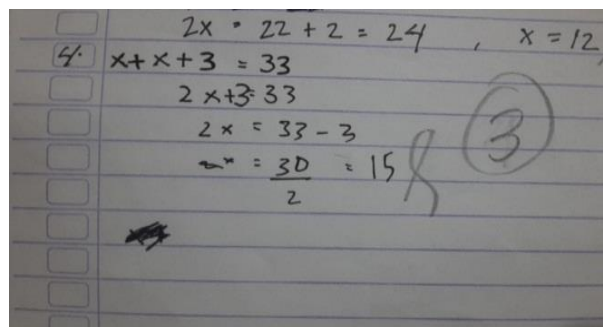 2x = 22 + 2 = 24 , x = 12
4. x + x + 3 = 33
2x+3=33
2x = 33 - 3
x = 30/2 = 15
3